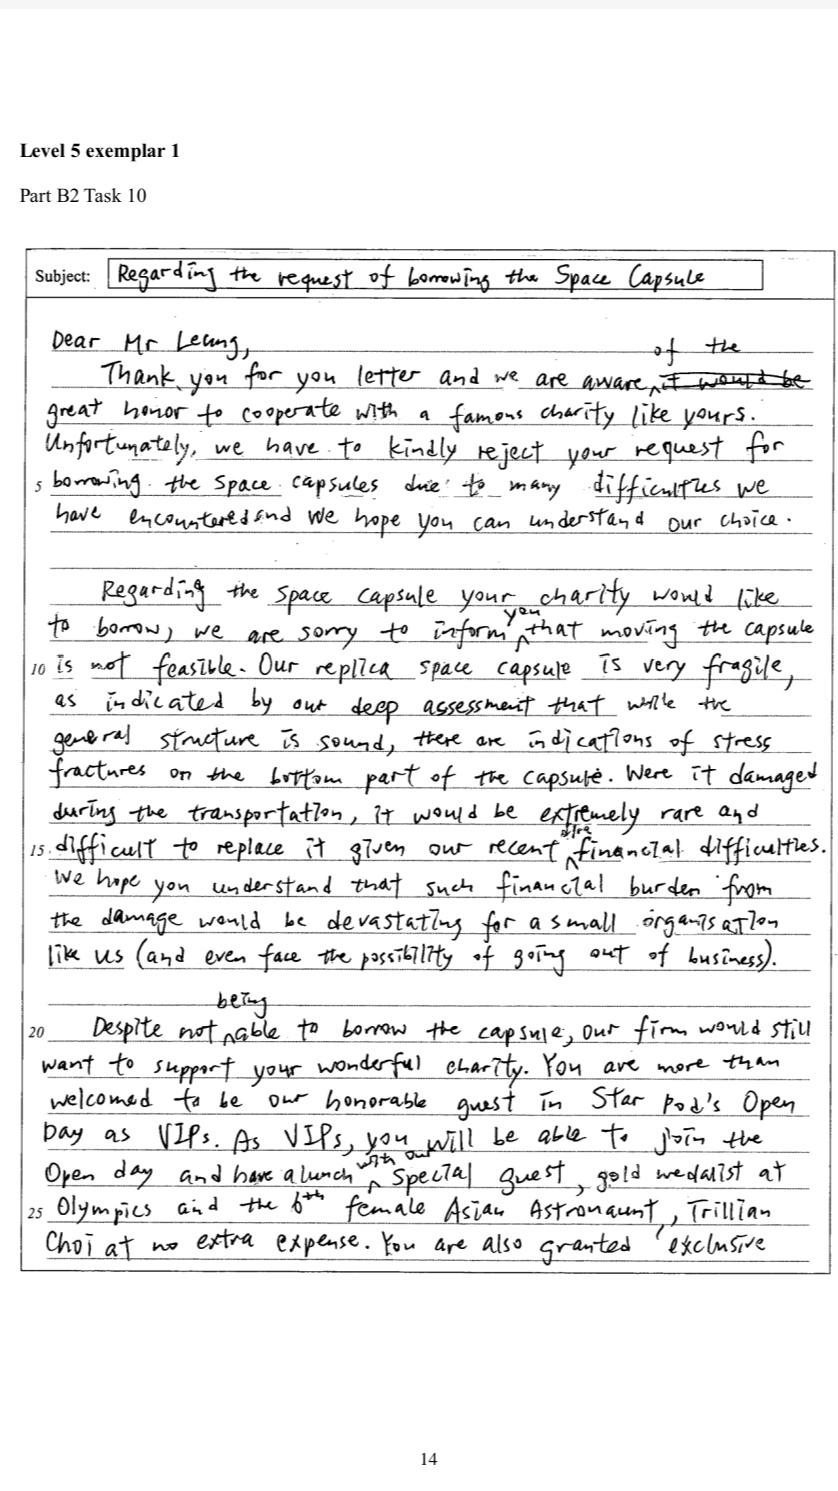 Level 5 exemplar 1
Part B2 Task 10
Subject: Regarding the request of borrowing the Space Capsule
Dear Mr Leung,
of the
Thank you for you letter and we are aware, it would be
great honor to cooperate with a famous charity like yours.
Unfortunately, we have to kindly reject your request for
5 borrowing the space capsules due to many difficulties we
have encountered and we hope you can understand our choice.
Regarding the space capsule your charity would like
to borrow, we are sorry to inform you that moving the capsule
10 is not feasible. Our replica space capsule is very fragile,
as indicated by our deep assessment that while the
general structure is sound, there are indications of stress
fractures on the bottom part of the capsule. Were it damaged
during the transportation, it would be extremely rare and
15 difficult to replace it given our recent financial difficulties.
We hope you understand that such financial burden from
the damage would be devastating for a small organisation
like us (and even face the possibility of going out of business).
being
20 Despite not able to borrow the capsule, our firm would still
want to support your wonderful charity. You are more than
welcomed to be our honorable guest in Star Pod's Open
Day as VIPs. As VIPs, you will be able to join the
Open day and have a lunch with our special guest, gold medalist at
25 Olympics and the 6th female Asian Astronaunt, Trillian
Choi at no extra expense. You are also granted exclusive
14